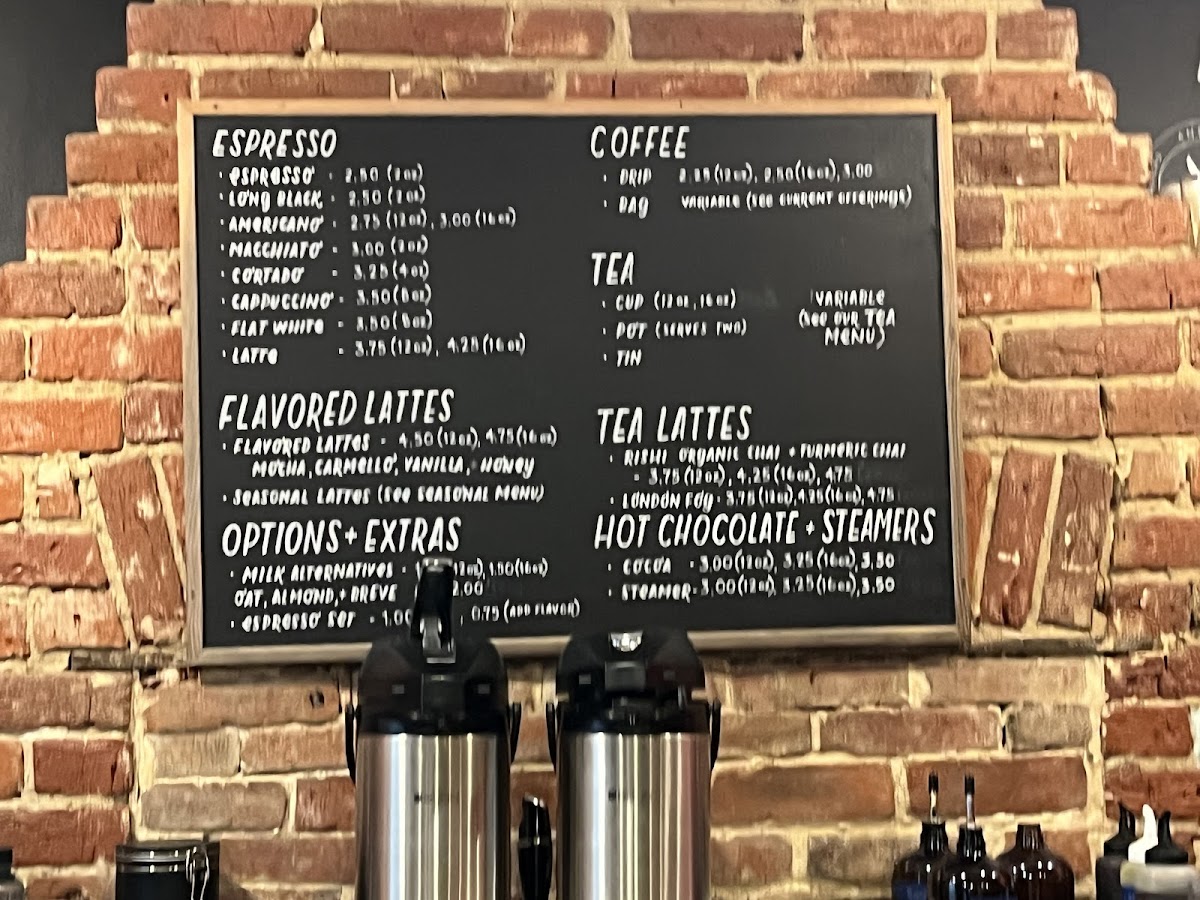 ESPRESSO
· ESPRESSO - 2.50 (2oz)
· LONG BLACK - 2.50 (2oz)
· AMERICANO - 2.75 (12oz), 3.00 (16oz)
· MACCHIATO - 3.00 (2oz)
· CORTADO - 3.25 (4oz)
· CAPPUCCINO - 3.50 (6oz)
· FLAT WHITE - 3.50 (8oz)
· LATTE - 3.75 (12oz), 4.25 (16oz)
FLAVORED LATTES
· FLAVORED LATTES = 4.50 (12oz), 4.75 (16oz)
MOCHA, CARMELLO, VANILLA, HONEY
· SEASONAL LATTES (SEE SEASONAL MENU)
OPTIONS + EXTRAS
· MILK ALTERNATIVES = (12oz), 1.50 (16oz)
OAT, ALMOND, + BREVE 2.00
· ESPRESSO SET = 1.00, 0.75 (ADD FLAVOR)
COFFEE
· DRIP 2.25 (12oz), 2.50 (16oz), 3.00
· BAG VARIABLE (SEE CURRENT OFFERINGS)
TEA
· CUP (12oz, 16oz)
· POT (SERVES TWO)
· TIN
VARIABLE
(SEE OUR TEA
MENU)
TEA LATTES
· RISHI ORGANIC CHAI + TURMERIC CHAI
= 3.75 (12oz), 4.25 (16oz), 4.75
· LONDON FOG - 3.75 (12oz), 4.25 (16oz), 4.75
HOT CHOCOLATE + STEAMERS
· COCOA - 3.00 (12oz), 3.25 (16oz), 3.50
· STEAMER - 3.00 (12oz), 3.25 (16oz), 3.50